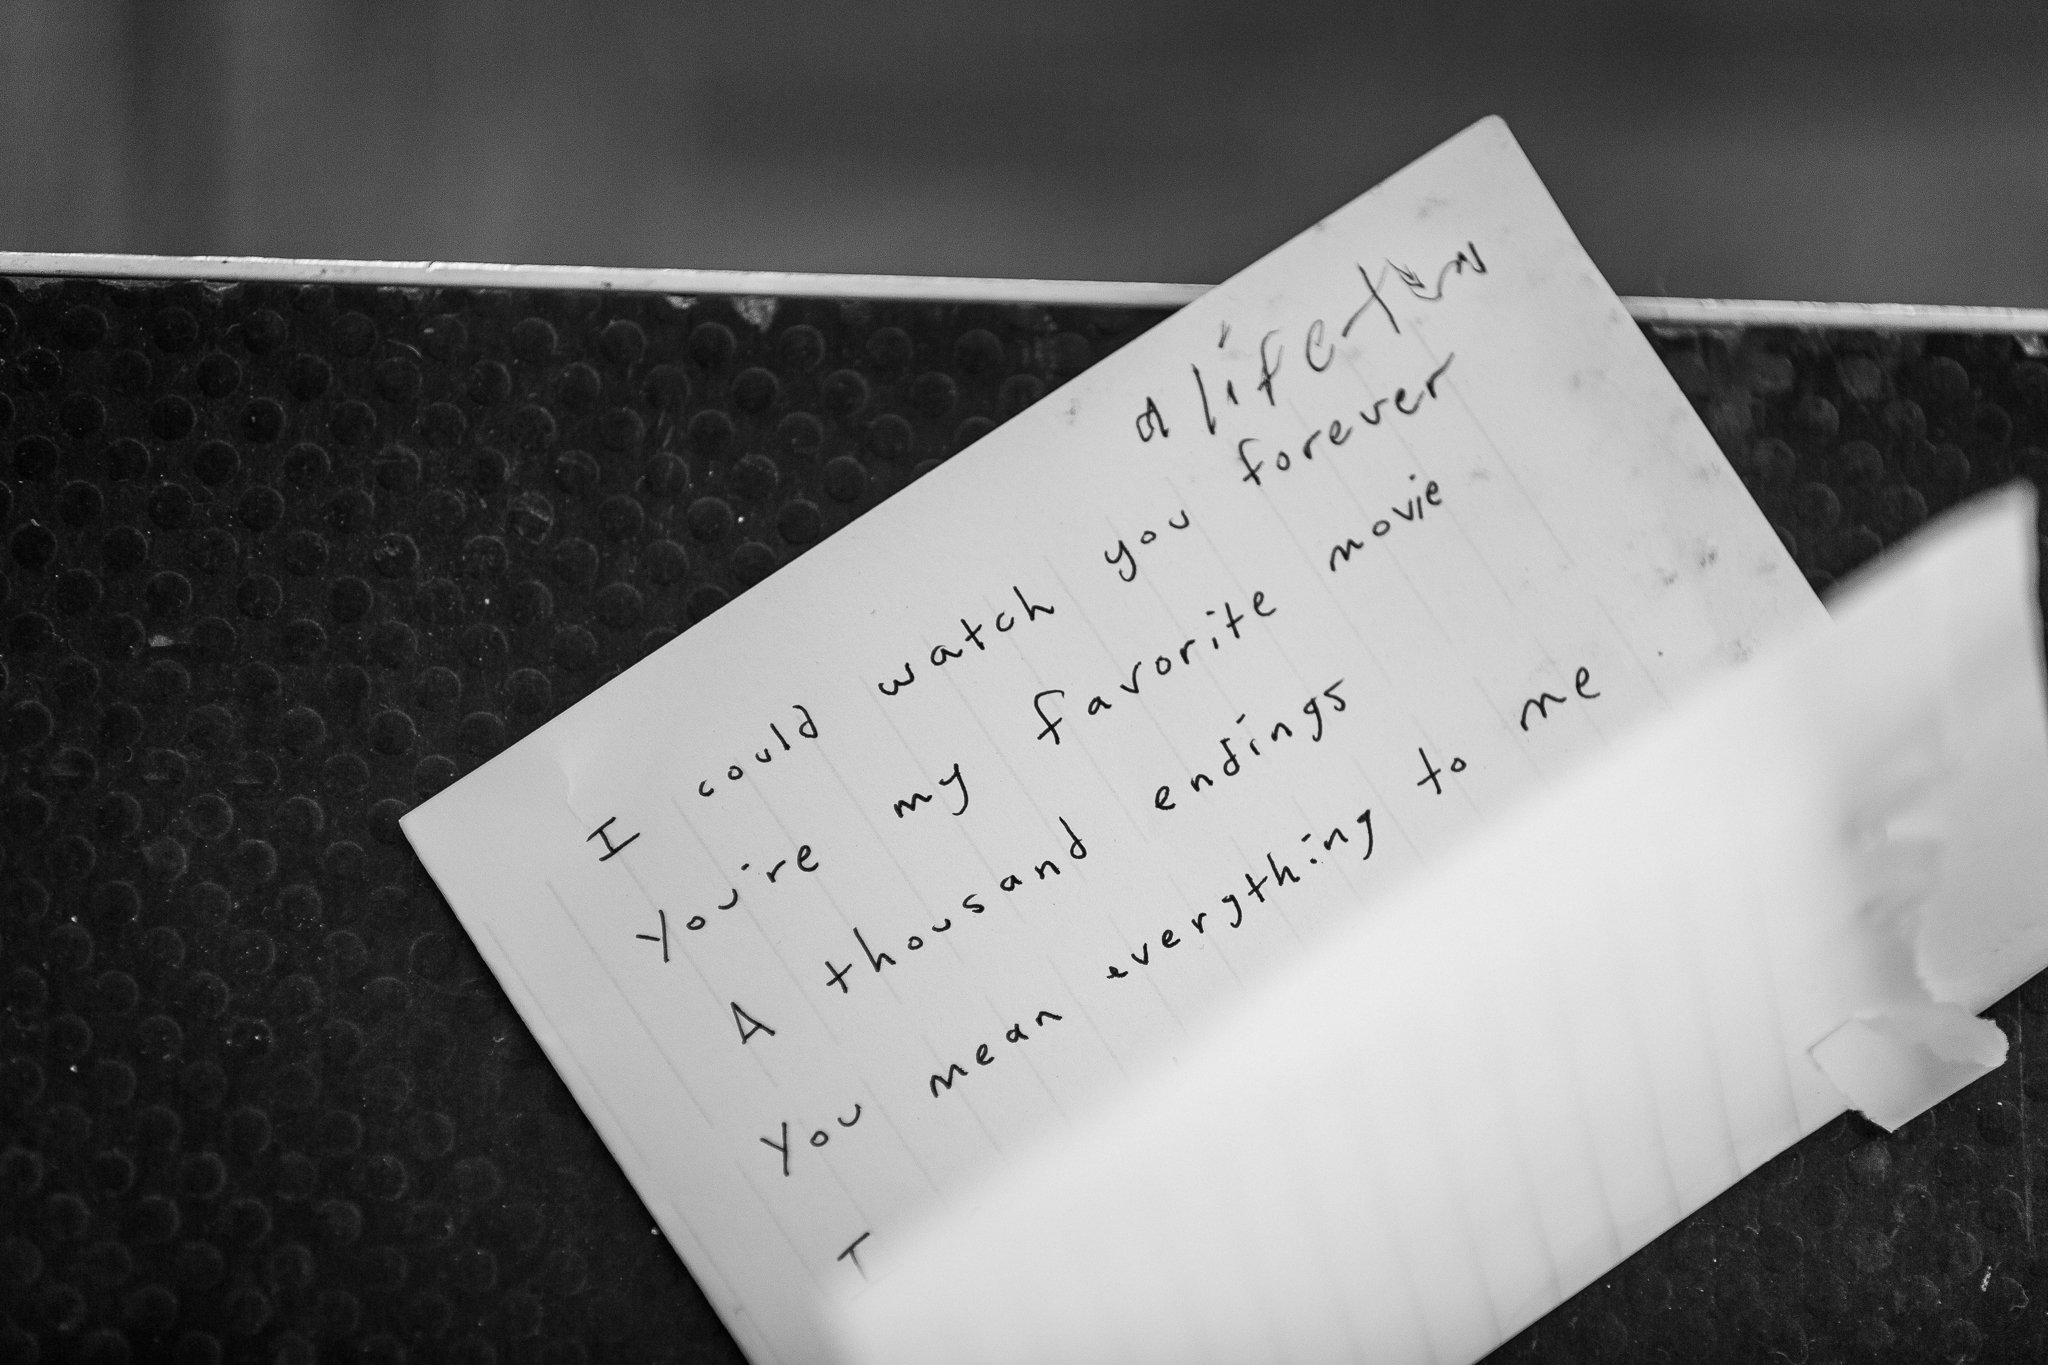 a lifetim
I could watch you forever
You're my favorite movie
A thousand endings
You mean everything to me